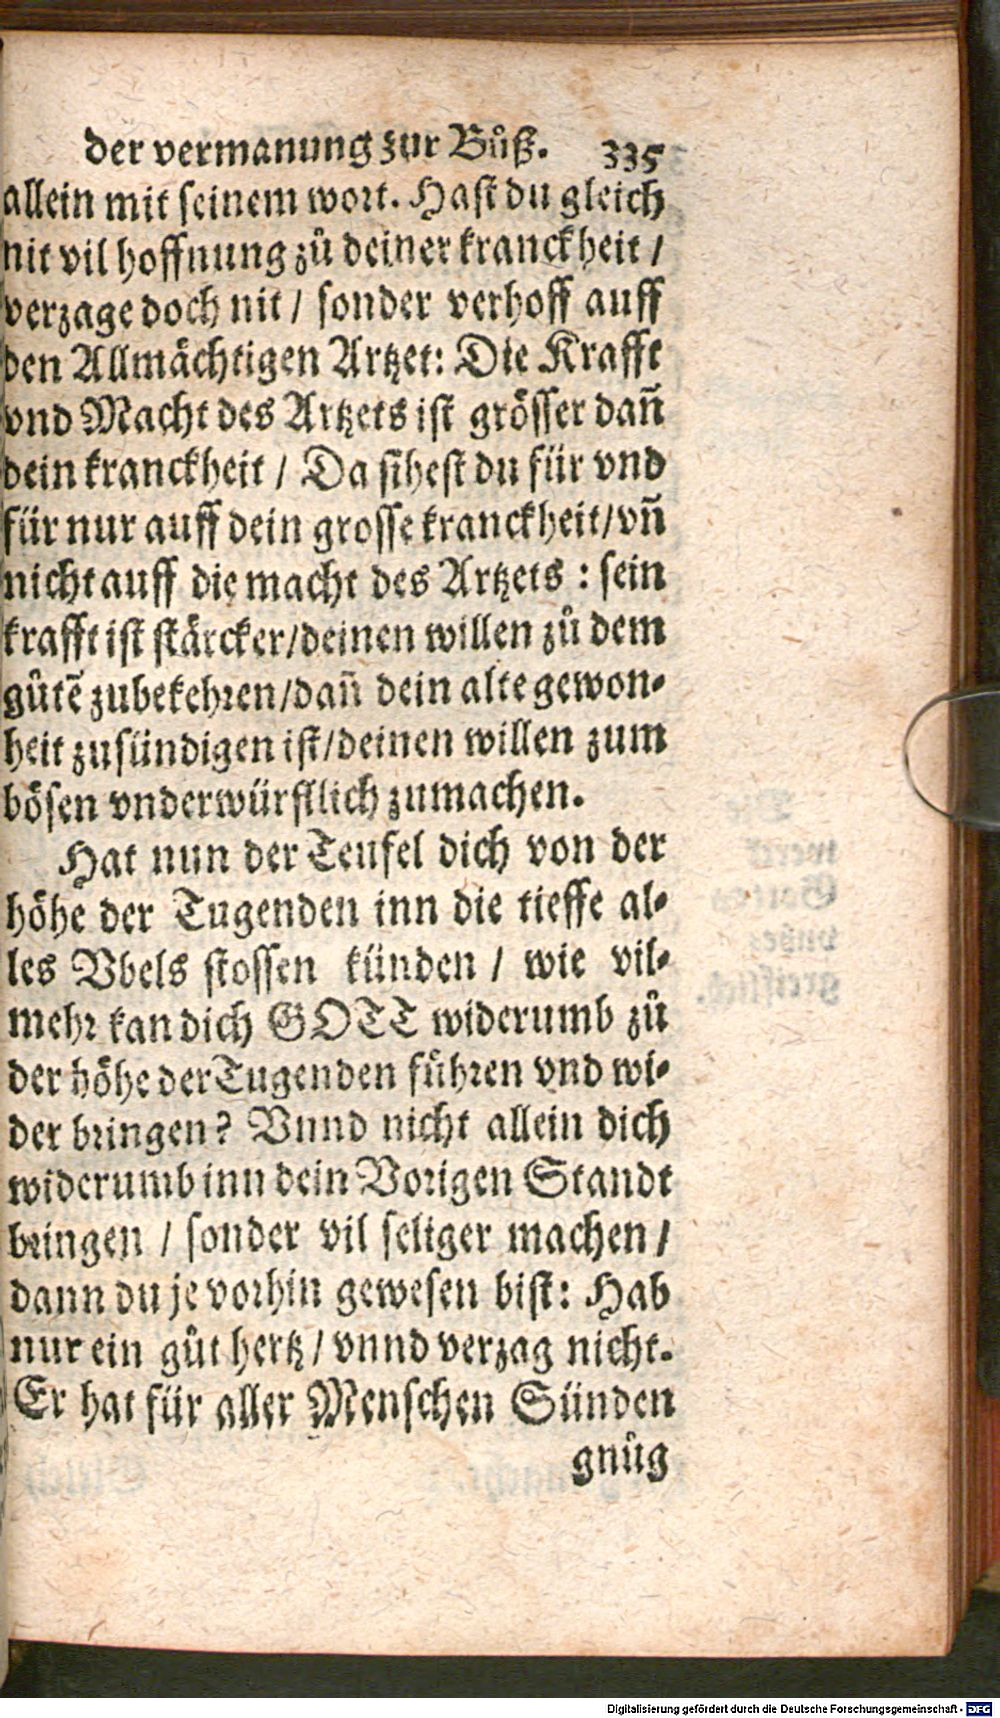 der vermanung zur Bůß. 335
allein mit seinem wort. Hast du gleich
nit vil hoffnung zů deiner kranckheit /
verzage doch nit / sonder verhoff auff
den Allmächtigen Artzet: Die Krafft
vnd Macht des Artzets ist grösser dañ
dein kranckheit / Da sihest du für vnd
für nur auff dein grosse kranckheit/vñ
nicht auff die macht des Artzets : sein
krafft ist stärcker/deinen willen zů dem
gůtẽ zubekehren/dañ dein alte gewon-
heit zusündigen ist/deinen willen zum
bösen vnderwürfflich zumachen.
Hat nun der Teufel dich von der
höhe der Tugenden inn die tieffe al-
les Vbels stossen künden / wie vil-
mehr kan dich GOTT widerumb zů
der höhe der Tugenden fůhren vnd wi-
der bringen? Vnnd nicht allein dich
widerumb inn dein Vorigen Standt
bringen / sonder vil seliger machen /
dann du je vorhin gewesen bist: Hab
nur ein gůt hertz / vnnd verzag nicht.
Er hat für aller Menschen Sünden
gnůg
Digitalisierung gefördert durch die Deutsche Forschungsgemeinschaft - DFG